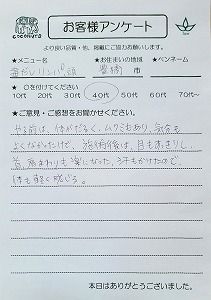 COCONUTS
お客様アンケート
より良い品質・今、掲載にご協力お願いします。
★メニュー名 ★お住まいの地域 ★ペンネーム
リンパ 頭 豊橋 市
★ ○を付けてください
10代 20代 30代 40代 50代 60代 70代〜
★ご意見・ご感想をお聞かせください。
やる前は、体がだるく、ムクミもあり、気分も
よくなかったけど、施術後は、目もすっきりし、
首、肩まわりも楽になった、汗もかけたので、
体も軽く感じる。
本日はありがとうございました。